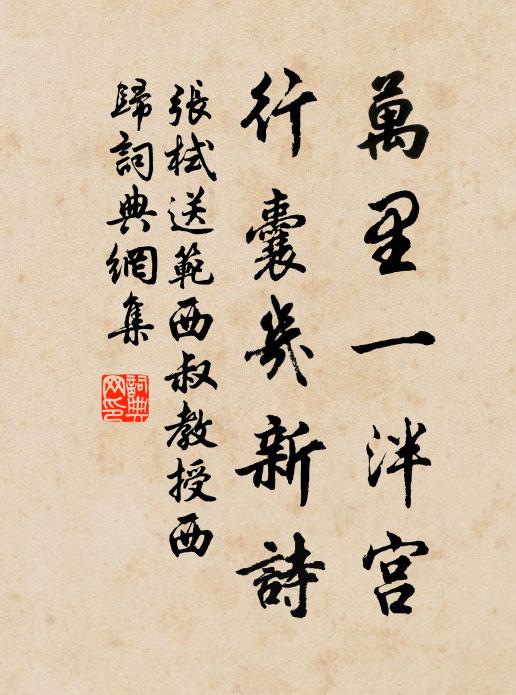 萬里一泮宫
行囊幾新詩
張栻送範西叔教授西
歸詞典網集
詞典网印